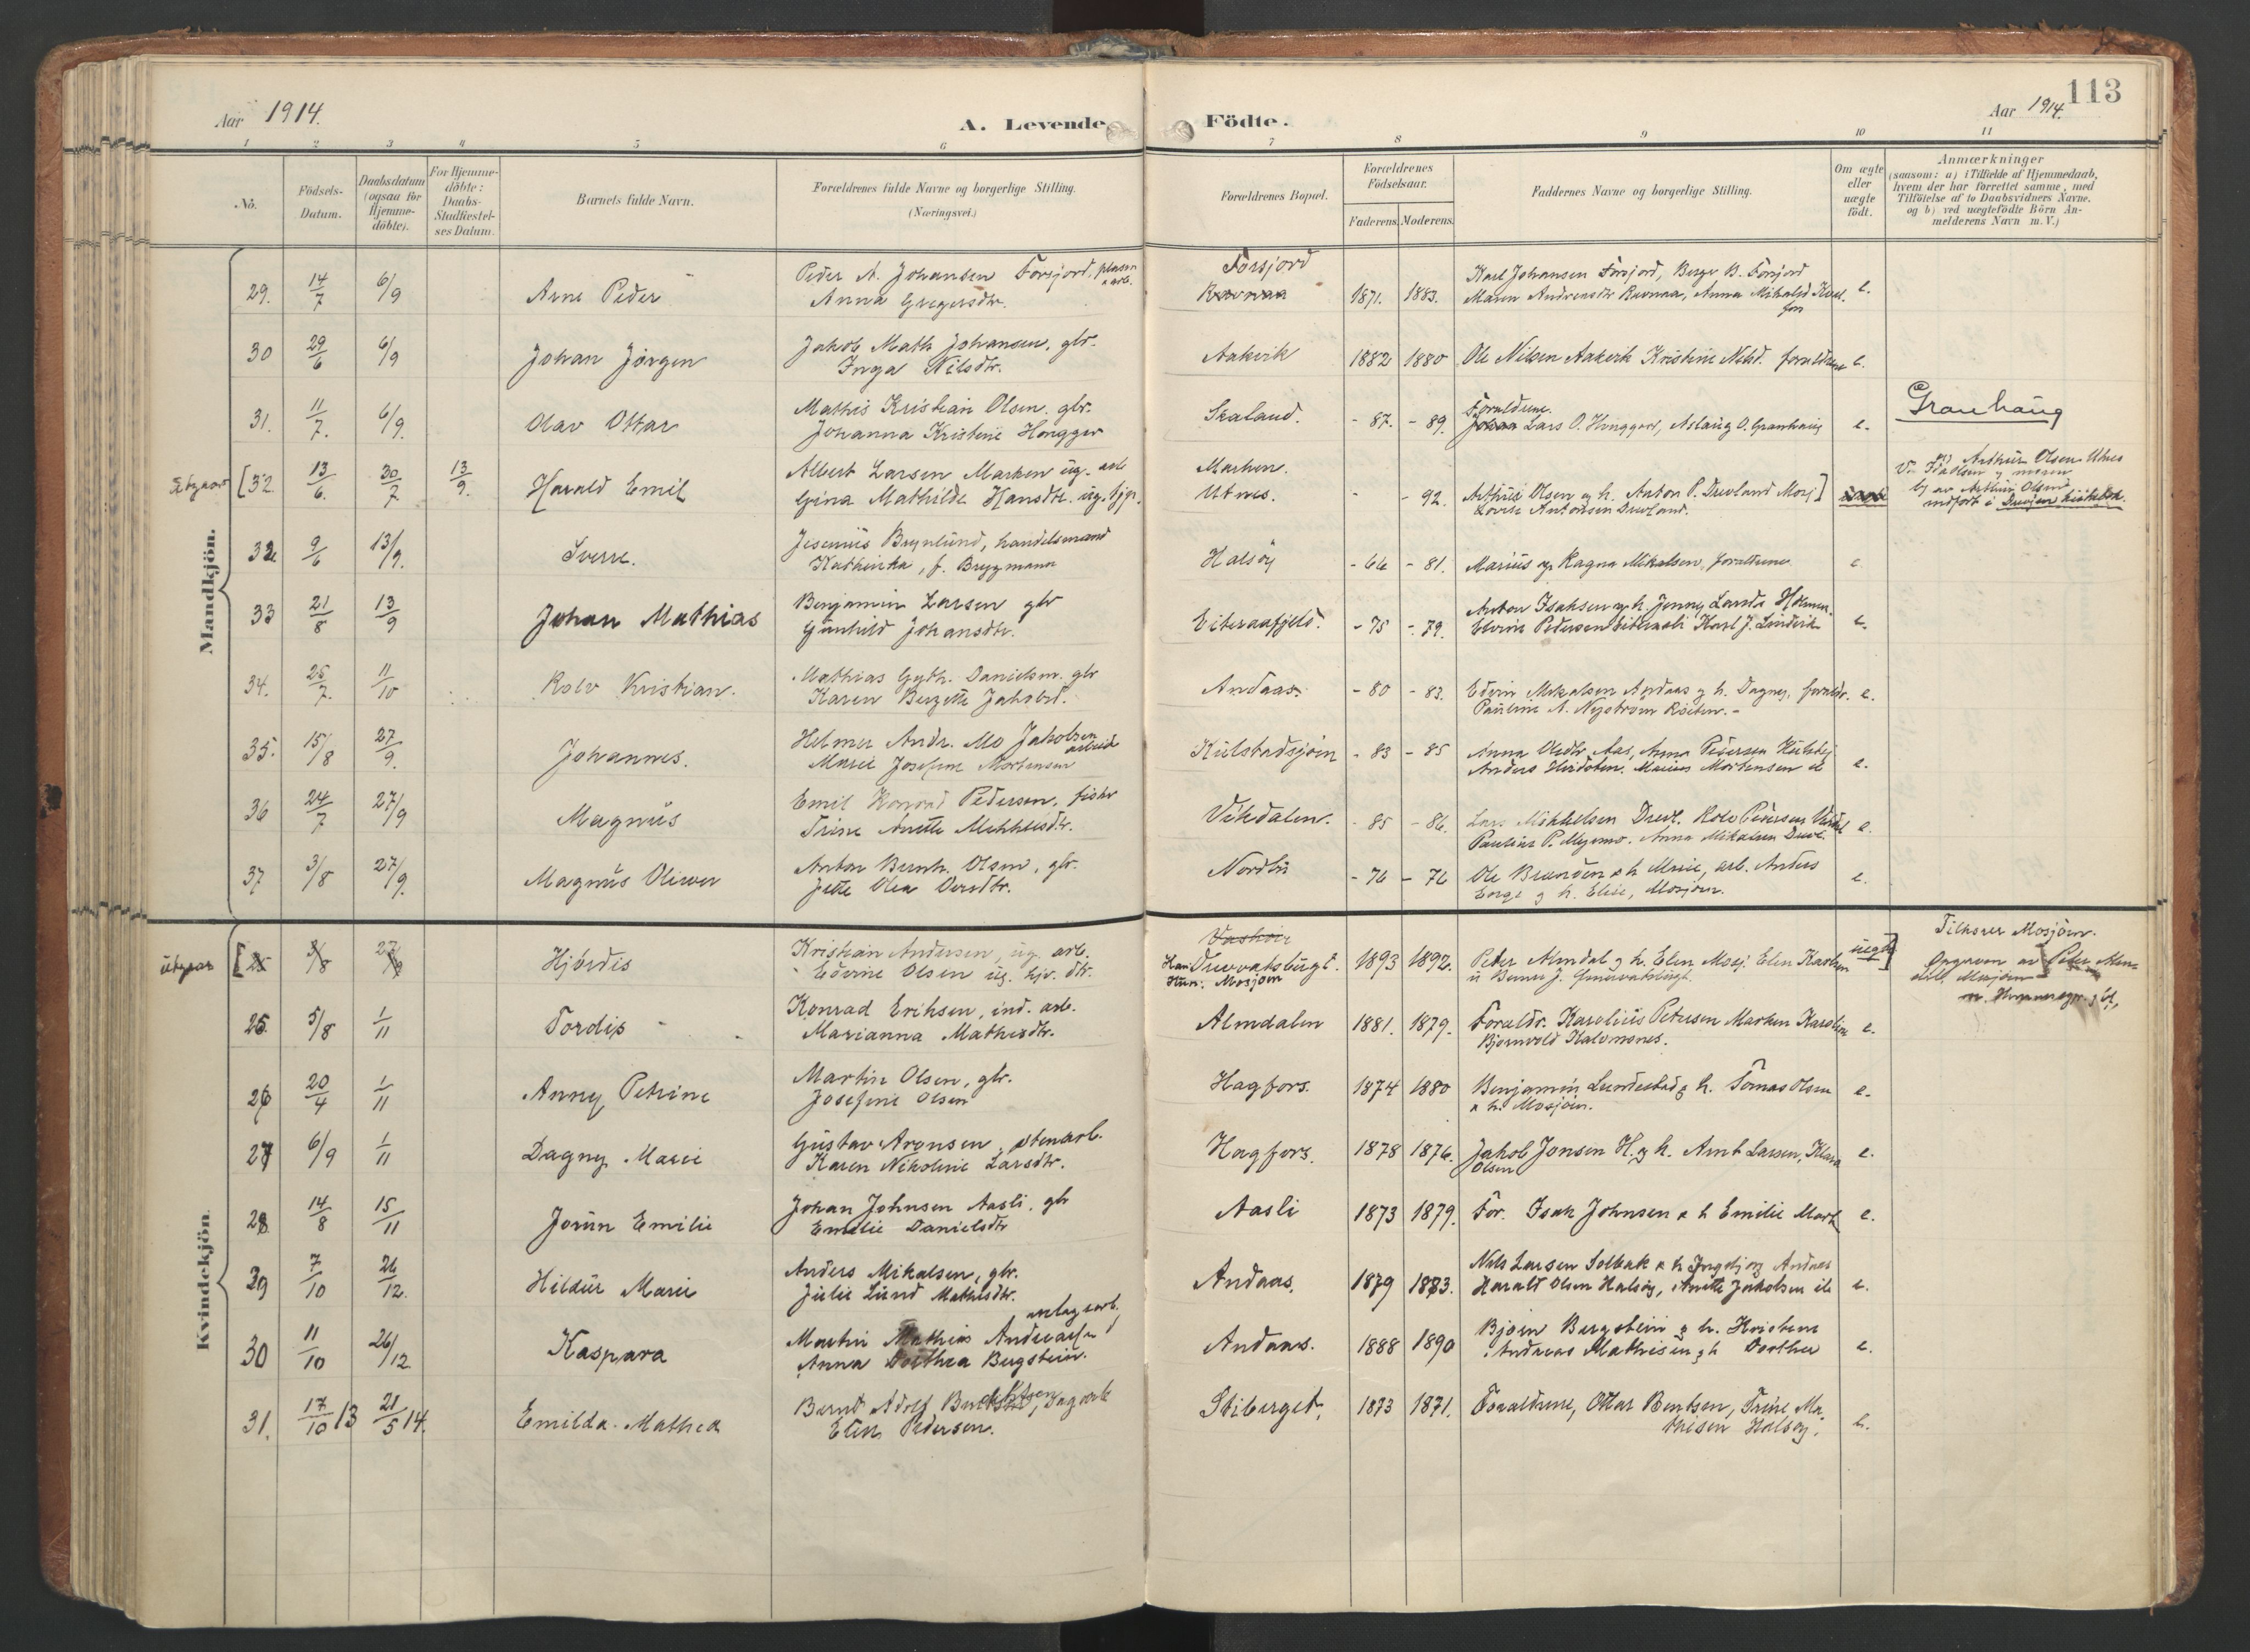 Aar 1914.
A. Levende
Födte.
Aar 1914.
113
1 2 3 4 5 6 7 8 9 10 11
No.
Födsels-
Datum.
Daabsdatum
(ogsaa for
Hjemme-
döbte).
For Hjemme-
döbte:
Daabs-
Stadfæstel-
ses Datum.
Barnets fulde Navn.
Forældrenes fulde Navne og borgerlige Stilling.
(Næringsvei.)
Forældrenes Bopæl.
Forældrenes
Födselsaar.
Faderens. Moderens.
Faddernes Navne og borgerlige Stilling.
Om ægte
eller
uægte
födt.
Anmærkninger
(saasom: a) i Tilfælde af Hjemmedaab,
hvem der har forrettet samme, med
Tilföielse af to Daabsvidners Navne.
og b) ved uægtefödte Börn An-
melderens Navn m. V.)
Mandkjön.
29. 14/7 6/9 Arne Peder
Peder A. Johansen Forsjord,
Anna Gregersdtr.
Forsjord
1871. 1883.
Karl Johansen Forsjord, Berger B. Forsjord
Maren Andreasdtr Ravnaa, Anna
e.
30 29/6 6/9 Johan Jörgen
Jakob Math Johansen, gbr.
Inga Nilsdtr.
Aakvik 1882 1880
Ole Nilsen Aakvik Kristine Nilsd. forældrene e.
31. 11/7. 6/9. Olav Ottar
Mathis Kristian Olsen. gbr.
Johanna Kristine Hongger
Skaland. - 87. - 89.
Forældrene.
Lars O. Honggard, Aslaug O. Granhaug e.
Granhaug
utgaar [32. 13/6. 30/7 13/9. Harald Emil
Albert Larsen Marken ug. arb
Gina Mathilde Hansdtr. ug. tjp.
Marken.
Utnes. - - 92.
Arthur Olsen og h. Anton P. Drevland Mosj]
Lovise Antonsen Drevland.
Arthur Olsen Utnes
av Arthur Olsens
indfört i Drevjen kirkebok.
32. 9/6 13/9. Sverre.
Jesenius Brynlund, handelsmand
Kathinka, f. Bryymann
Halsöy - 66 - 81.
Marius og Ragna Mikalsen, forældrene e.
33 21/8 13/9 Johan Mathias
Benjamin Larsen gbr
Gunhild Johansdtr.
Eiteraafjeld. - 75 - 79.
Anton Isaksen og h. Jenny Larsdr Holmen.
Elvine Pedersen Karl J.
e.
34. 25/7. 11/10 Rolv Kristian.
Mathias Gyth. Danielsen. gbr
Karen Bergette Jakobsd.
Andaas. - 80 - 83.
Edvin Mikalsen Andaas og h. Dagny, forældr. e.
Pauline A. Nyström
35. 15/8 27/9. Johannes.
Helmer Andr. Mo Jakobsen
arbeider
Marie Josefine Mortensen
Kulstadsjöen - 83 - 85
Anna Olsdtr Aas, Anna Pedersen
Anders Marius Mortensen e.
36 24/7 27/9 Magnus
Emil Konrad Pedersen, fisker
Trine Anette Mikkelsdtr.
Vikdalen. - 85 - 86.
Lars Mikkelsen Drevl. Rolv Pedersen e.
Paulus P. Anna Mikalsen Drevl.
37 3/8 27/9. Magnus Oliver
Anton Bernh. Olsen, gbr.
Jette Olea
Nordli - 76 - 76
Ole Brænden & h Marie, arb. Anders
og h. Elise, Mosjöen. e.
Kvindekjön.
utgaar [25 3/8 27/9 Hjördis
Kristian Andersen, ug. arb.
Edvine Olsen ug. dtr.
Han: Drevvatsbygd.
Hun: Mosjöen
1893 1892.
Peter Almdal og h. Elen Mosj. Elen Karlsen
uegte]
Tilhörer Mosjöen.
Opgaven av
Mosjöen
25 5/8 1/11 Tordis
Konrad Eriksen, ind. arb.
Marianna Mathisdtr.
Almdalen 1881. 1879.
Forældr. Karolius Petersen Marken Karoline e.
Bjornvold Halvmones.
26 20/4 1/11 Anny Petrine
Martin Olsen, gbr.
Josefine Olsen
Hagfors. 1874 1880
Benjamin Lundestad og h. Tomas Olsen e.
& h. Mosjöen.
27 6/9 1/11 Dagny Marie
Gustav Aronsen, stenarb.
Karen Nikoline Larsdtr.
Hagfors. 1878 1876.
Jakob Jonsen H. og h. Arnt Larsen, Klara e.
Olsen
28 14/8 15/11 Jorun Emilie
Johan Johnsen Aasli, gbr
Emelie Danielsdtr
Aasli 1873 1879.
For. Isak Johnsen & h Emilie Mark e.
29 7/10 26/12. Hildur Marie
Anders Mikalsen, gbr.
Julie Lund Mathisdtr.
Andaas, 1879 1883.
Nils Larsen Solbak & h Ingebjorg Andaas
Harald Olsen Halsöy, Anette Jakobsen e.
30 11/10 26/12 Kaspara
Martin Mathias Andreassen, anlegsarb.
Anna Dorthea Bergstein.
Andaas. 1888 1890
Bjorn Bergstein og h. Kristine
Andreas Mathisen og h Dorthea e.
31. 17/10 13 21/5 14. Emilda Mathea
Bernt Adolf dagarb
Elen Pedersen.
Stiberget, 1873 1871.
Forældrene, Ottar Bentsen, Trine Ma-
thisen Halsöy. e.